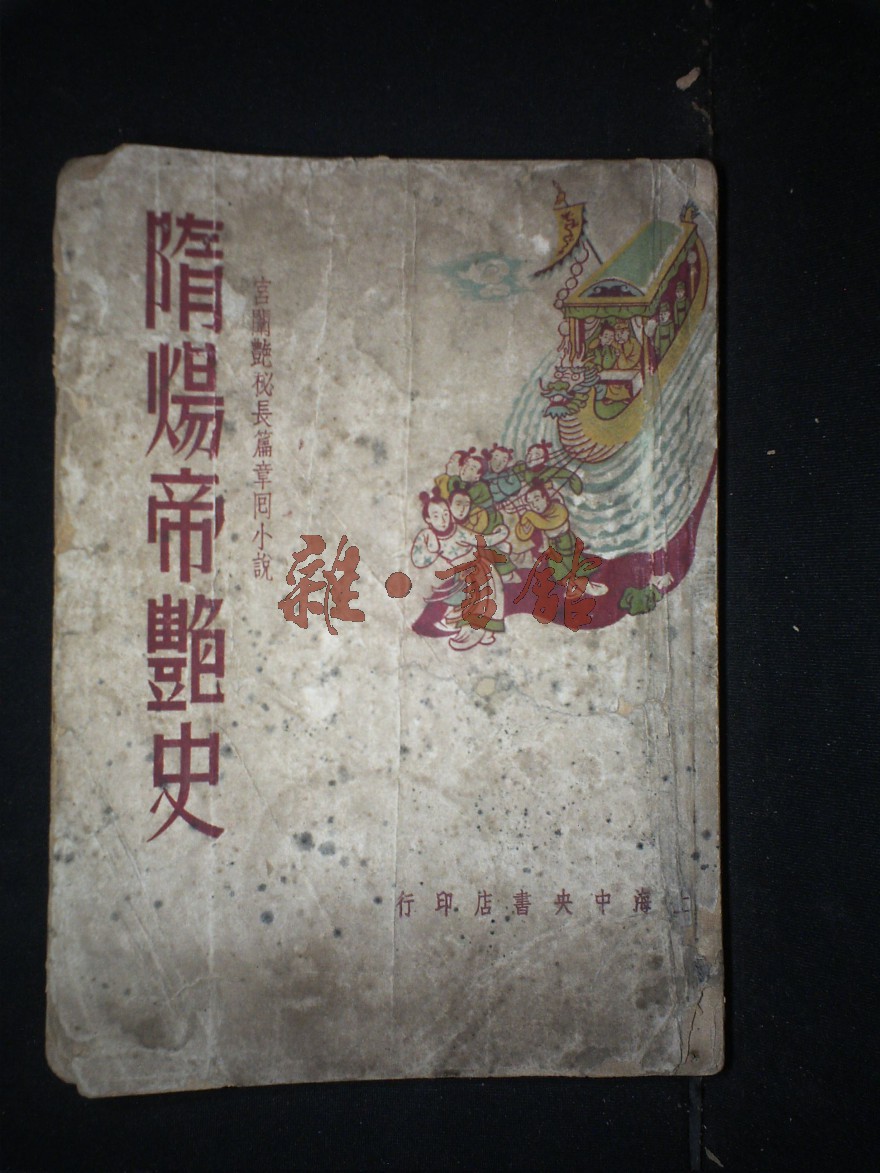 隋煬帝艷史
宮闈艷秘長篇章回小說
雜·書館
上海中央書店印行